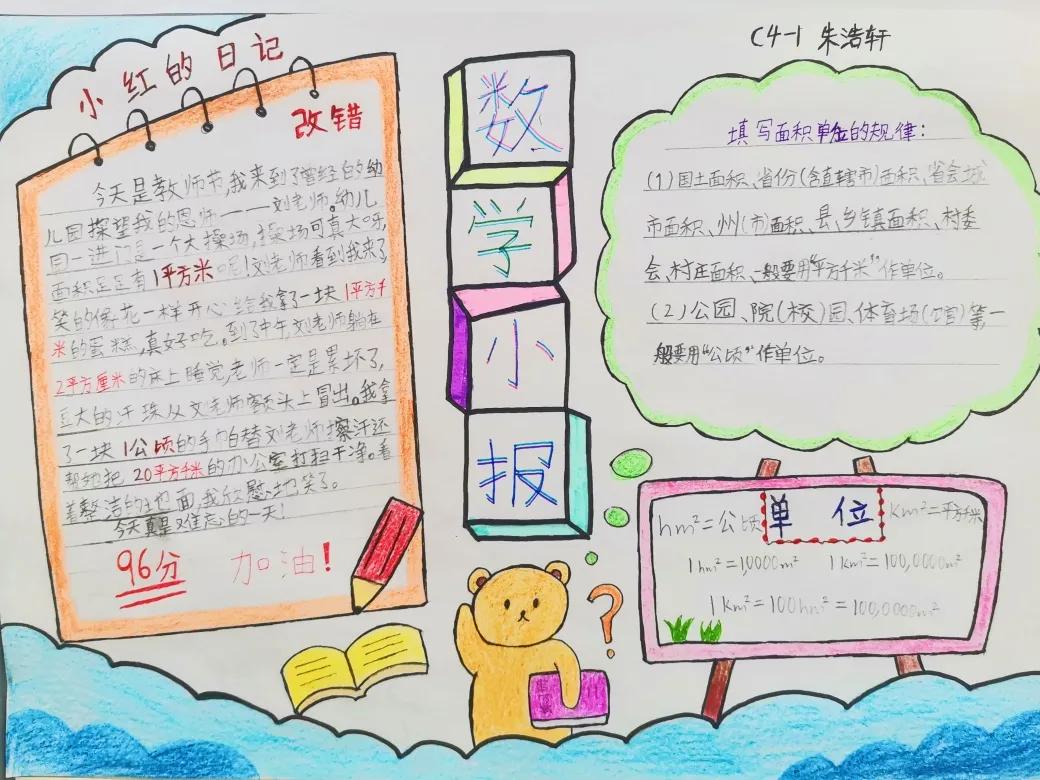 C4-1 朱浩轩
小红的日记
改错
今天是教师节,我来到了曾经的幼
儿园探望我的恩师——刘老师。幼儿
园一进门是一个大操场,操场可真大呀,
面积足足有1平方米呢!刘老师看到我来了,
笑的像花一样开心给我拿了一块1平方千
米的蛋糕,真好吃。到了中午,刘老师躺在
2平方厘米的床上睡觉,老师一定是累坏了,
豆大的汗珠从文老师额头上冒出。我拿
了一块1公顷的手帕替刘老师擦汗还
帮她把20平方千米的办公室打扫干净。看
着整洁的地面,我欣慰地笑了。
今天真是又难忘的一天!
96分
加油!
数
学
小
报
填写面积单位的规律:
(1)国土面积、省份(含直辖市)面积、省会城
市面积、州(市)面积、县、乡镇面积、村委
会、村庄面积、一般要用“平方千米”作单位。
(2)公园、院(校)园、体育场(馆)等,一
般要用“公顷”作单位。
单位
hm²=公顷
km²=平方千米
1hm²=1,0000m²
1km²=100,0000m²
1km²=100hm²=100,0000m²
?